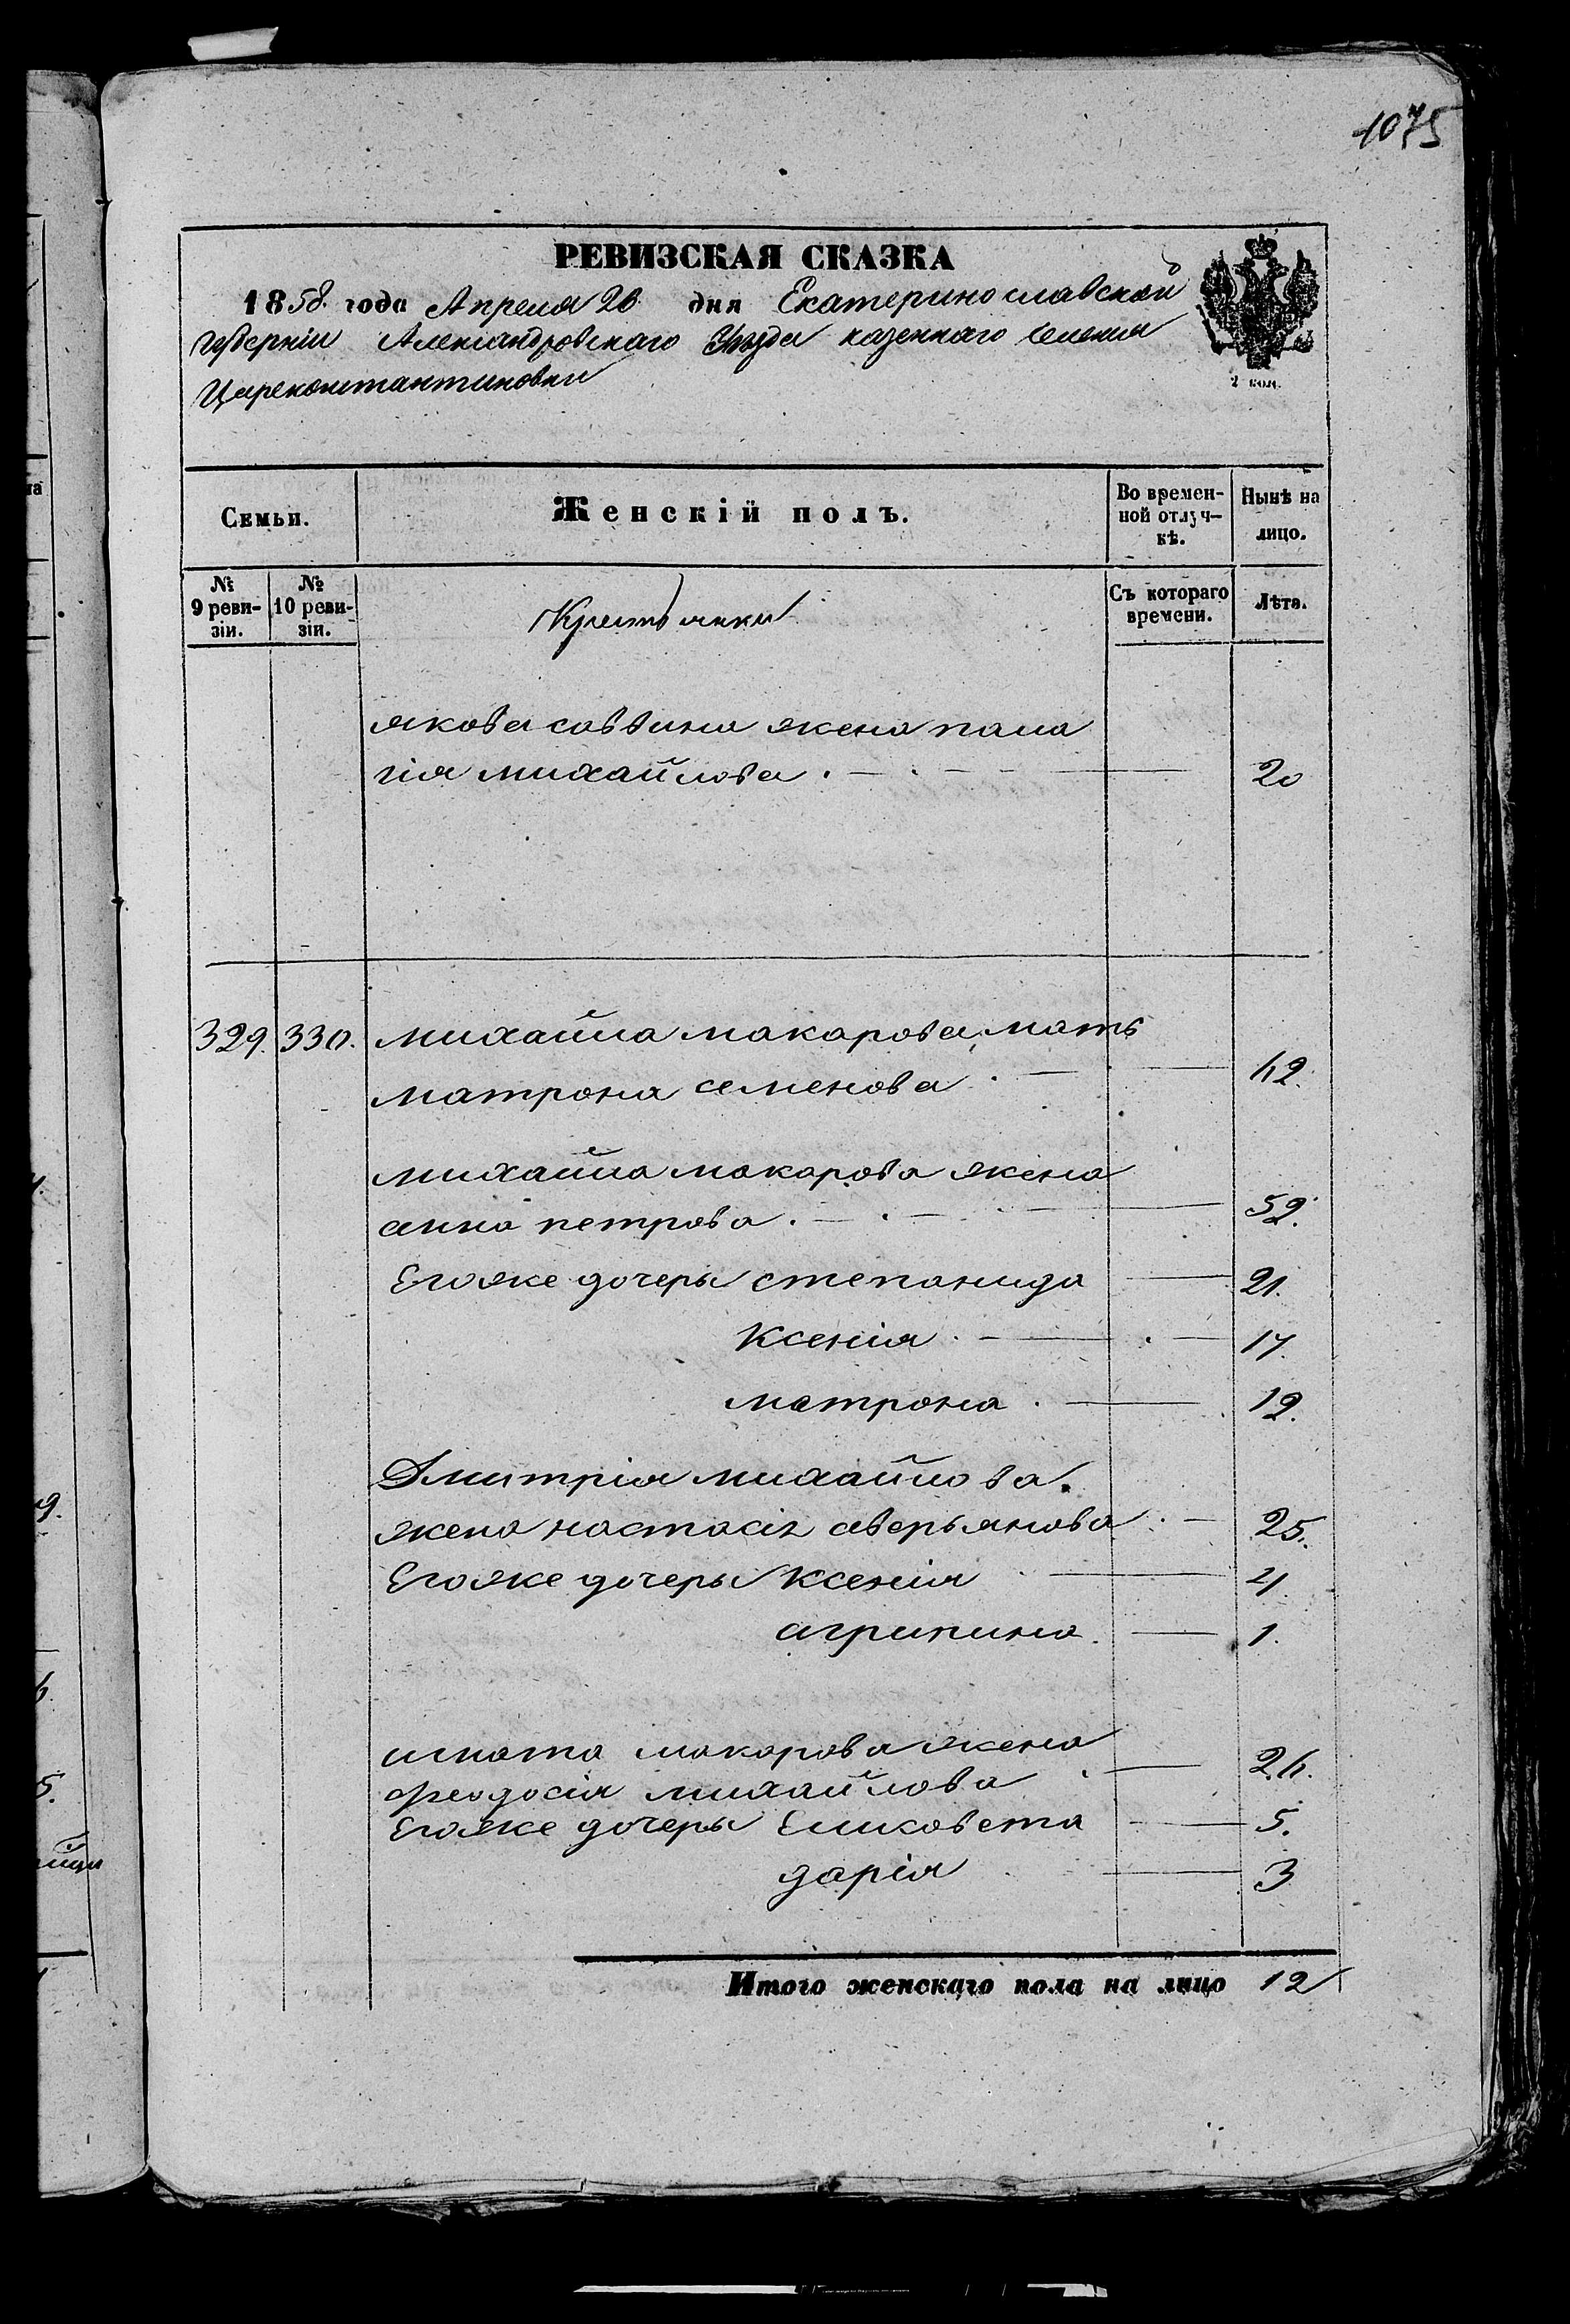 1075
РЕВИЗСКАЯ СКАЗКА
1858. года Апреля 26. дня Екатеринославской
губерніи Александровскаго Уѣзда казеннаго селенія
Цареконстантиновки
2 коп.
Семьи.
Женскій полъ.
Во времен-
ной отлуч-
кѣ.
Нынѣ на
лицо.
№
9 реви-
зіи.
№
10 реви-
зіи.
Крестьянки
Съ котораго
времени.
Лѣта.
якова саввина жена пала
гія михайлова 20
329. 330. михайла макарова мать
матрона семенова
михайла макарова жена
анна петрова 52.
Егоже дочеры степанида 21.
Ксенія 17.
матрона 12.
Дмитрія михайлова
жена настасія аверьянова 25.
Егоже дочеры Ксенія 4
агрипина 1.
игната макарова жена
феодосія михайлова 26.
Егоже дочеры Елисовета 5.
дарія 3
Итого женскаго пола на лицо 12